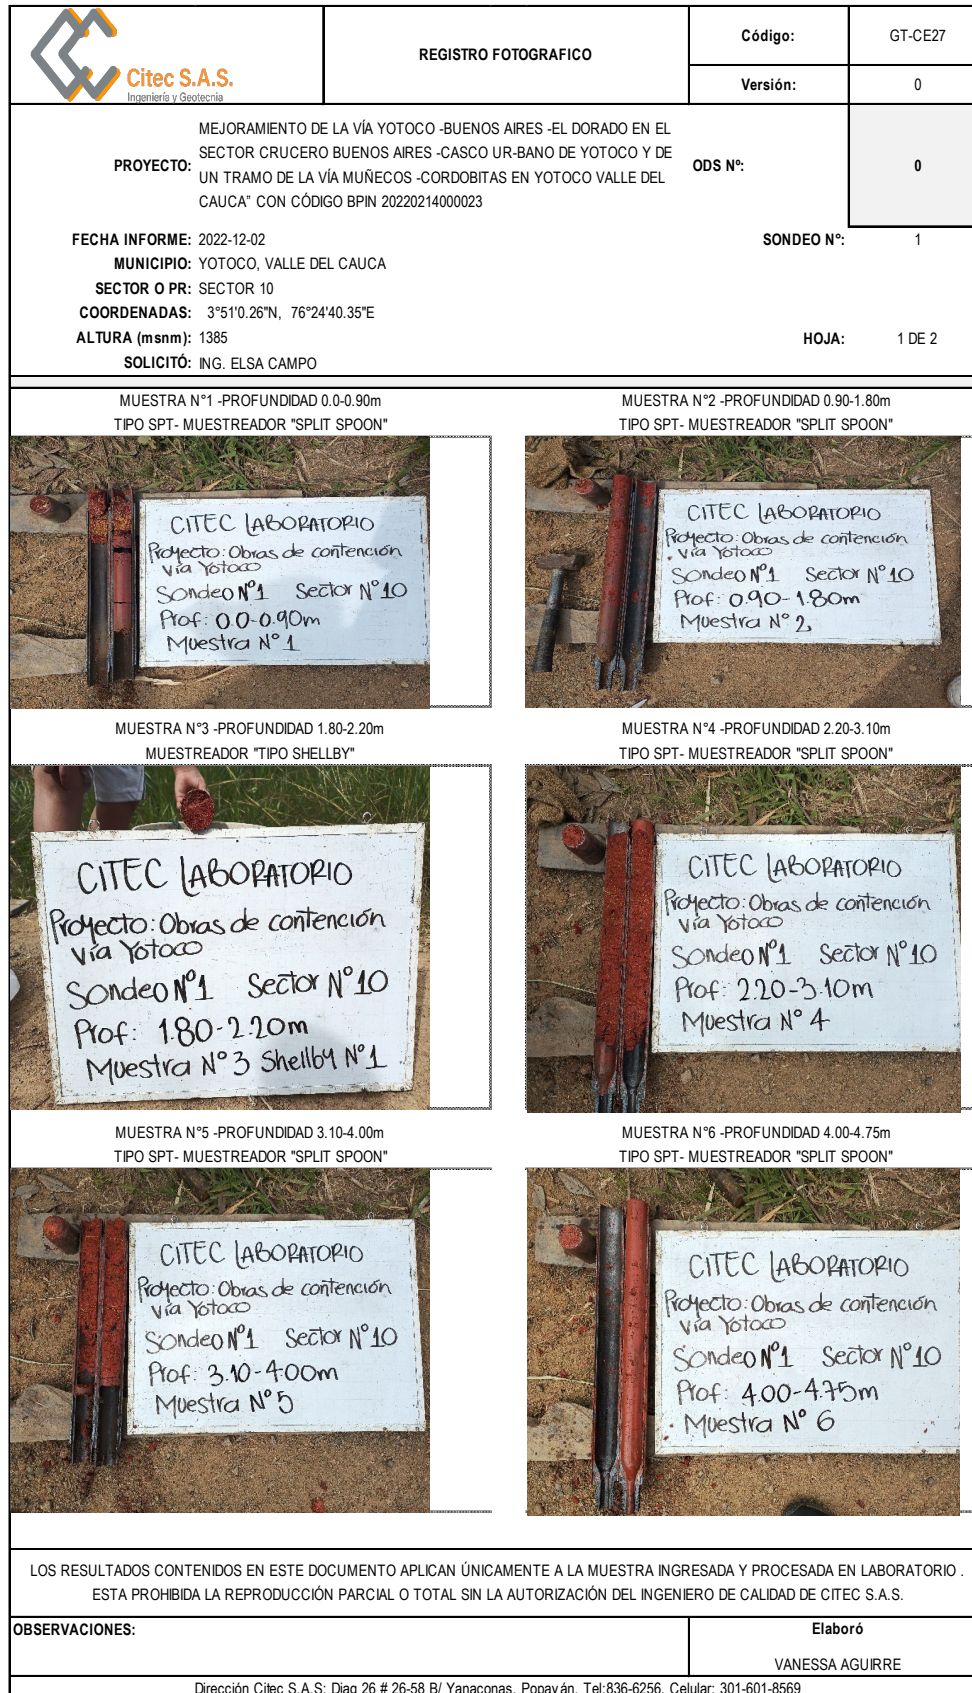 Citec S.A.S.
Ingeniería y Geotecnia
REGISTRO FOTOGRAFICO
Código:
GT-CE27
Versión:
0
PROYECTO:
MEJORAMIENTO DE LA VÍA YOTOCO -BUENOS AIRES -EL DORADO EN EL
SECTOR CRUCERO BUENOS AIRES -CASCO UR-BANO DE YOTOCO Y DE
UN TRAMO DE LA VÍA MUÑECOS -CORDOBITAS EN YOTOCO VALLE DEL
CAUCA" CON CÓDIGO BPIN 20220214000023
ODS Nº:
0
FECHA INFORME: 2022-12-02
SONDEO Nº: 1
MUNICIPIO: YOTOCO, VALLE DEL CAUCA
SECTOR O PR: SECTOR 10
COORDENADAS: 3°51'0.26"N, 76°24'40.35"E
ALTURA (msnm): 1385
HOJA: 1 DE 2
SOLICITÓ: ING. ELSA CAMPO
MUESTRA N°1 -PROFUNDIDAD 0.0-0.90m
TIPO SPT- MUESTREADOR "SPLIT SPOON"
CITEC LABORATORIO
Proyecto: Obras de contención
vía Yotoco
Sondeo Nº1 Sector N°10
Prof: 0.0-0.90m
Muestra N° 1
MUESTRA N°2 -PROFUNDIDAD 0.90-1.80m
TIPO SPT- MUESTREADOR "SPLIT SPOON"
CITEC LABORATORIO
Proyecto: Obras de contención
vía Yotoco
Sondeo Nº1 Sector N°10
Prof: 0.90-1.80m
Muestra N° 2
MUESTRA N°3 -PROFUNDIDAD 1.80-2.20m
MUESTREADOR "TIPO SHELLBY"
CITEC LABORATORIO
Proyecto: Obras de contención
vía Yotoco
Sondeo Nº1 Sector N°10
Prof: 1.80-2.20m
Muestra N° 3 Shellby N°1
MUESTRA N°4 -PROFUNDIDAD 2.20-3.10m
TIPO SPT- MUESTREADOR "SPLIT SPOON"
CITEC LABORATORIO
Proyecto: Obras de contención
vía Yotoco
Sondeo Nº1 Sector N°10
Prof: 2.20-3.10m
Muestra N° 4
MUESTRA N°5 -PROFUNDIDAD 3.10-4.00m
TIPO SPT- MUESTREADOR "SPLIT SPOON"
CITEC LABORATORIO
Proyecto: Obras de contención
vía Yotoco
Sondeo Nº1 Sector N°10
Prof: 3.10-4.00m
Muestra N° 5
MUESTRA N°6 -PROFUNDIDAD 4.00-4.75m
TIPO SPT- MUESTREADOR "SPLIT SPOON"
CITEC LABORATORIO
Proyecto: Obras de contención
vía Yotoco
Sondeo Nº1 Sector N°10
Prof: 4.00-4.75m
Muestra N° 6
LOS RESULTADOS CONTENIDOS EN ESTE DOCUMENTO APLICAN ÚNICAMENTE A LA MUESTRA INGRESADA Y PROCESADA EN LABORATORIO .
ESTA PROHIBIDA LA REPRODUCCIÓN PARCIAL O TOTAL SIN LA AUTORIZACIÓN DEL INGENIERO DE CALIDAD DE CITEC S.A.S.
OBSERVACIONES:
Elaboró
VANESSA AGUIRRE
Dirección Citec S.A.S: Diag 26 # 26-58 B/ Yanaconas, Popayán, Tel:836-6256, Celular: 301-601-8569